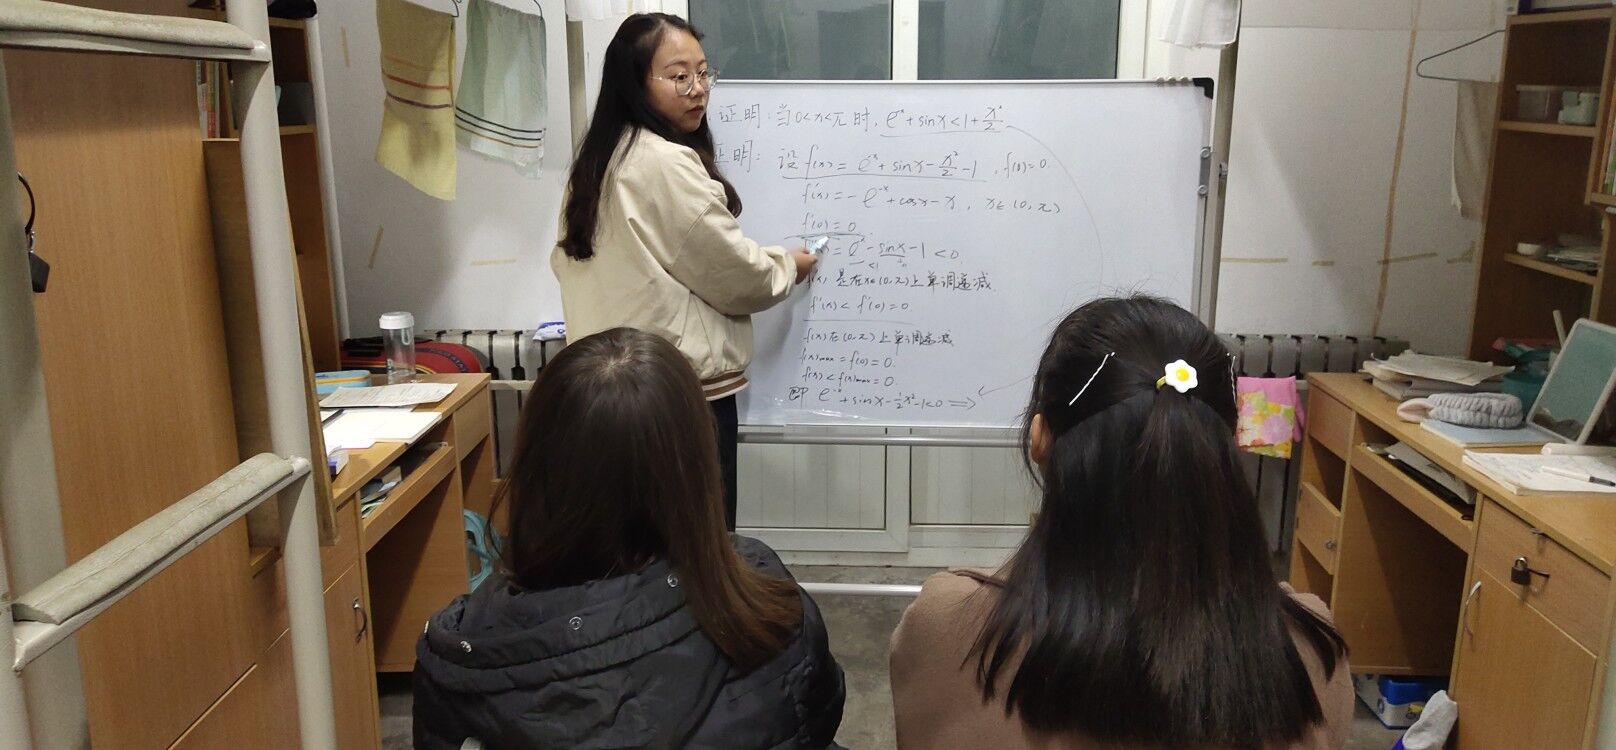 证明：当0<x<π时，e⁻ˣ+sinx<1+x²/2
证明：设f(x)=e⁻ˣ+sinx-x²/2-1，f(0)=0.
f'(x)=-e⁻ˣ+cosx-x，x∈(0,π)
f'(0)=0
=e⁻ˣ-sinx-1<0
<1
f'(x)是在x∈(0,π)上单调递减
f'(x)<f'(0)=0
f(x)在(0,π)上单调递减
f(x)max=f(0)=0.
f(x)<f(x)max=0.
即e⁻ˣ+sinx-½x²-1<0⇒